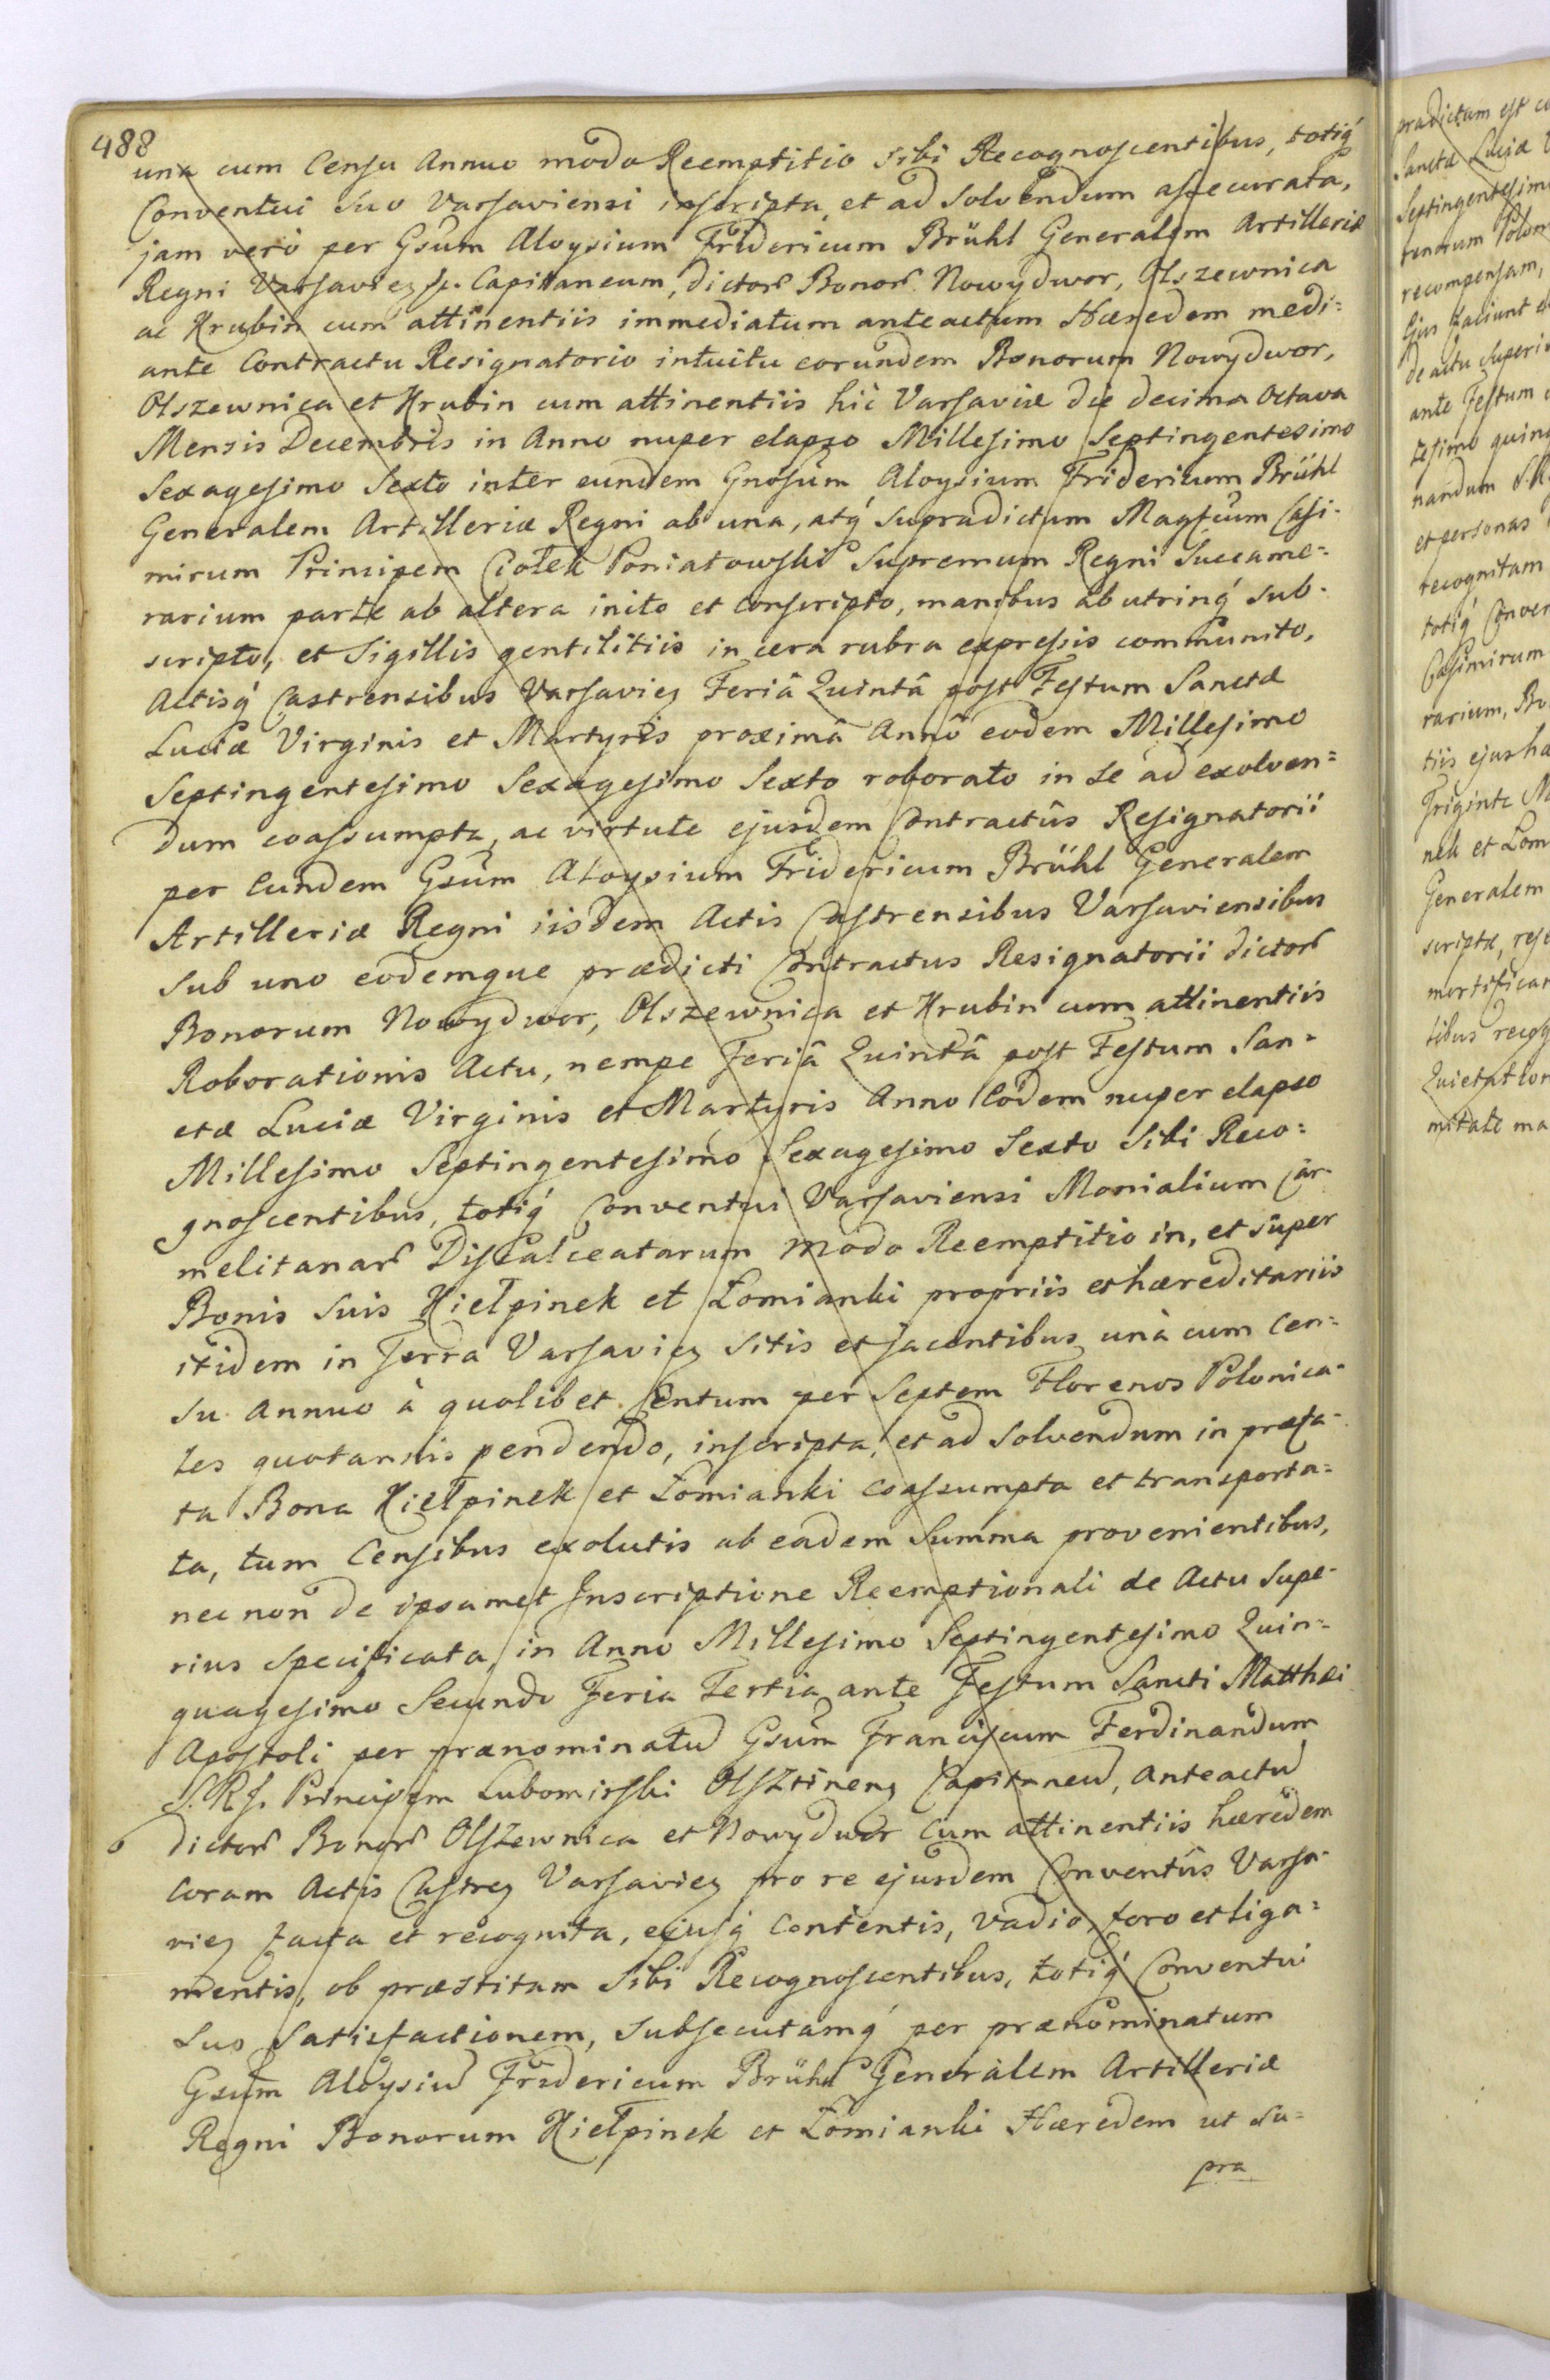 488
una cum Censu Annuo modo Reemptitio sibi Recognoscentibus, totiq́
Conventui Suo Varsaviensi inscripta, et ad solvendum assecurata,
jam verò per Gsum Aloysium Fridericum Brühl Generalem Artilleriæ
Regni Varsavieng Capitaneum, dictor Bonor Nowydwor, Olszewnica
ac Krubin cum attinentiis immediatum anteactum Hæredem medi=
ante Contractu Resignatorio intuitu eorundem Bonorum Nowydwor,
Olszewnica et Krubin cum attinentiis hic Varsaviæ die decima Octava
Mensis Decembris in Anno nuper elapso Millesimo Septingentesimo
Sexagesimo Sexto inter eundem Gnosum Aloysium Fridericum Brühl
Generalem Artilleriæ Regni ab una, atq́ supradictum Magfcum Casi-
mirum Principem Ciołek Poniatowski Supremum Regni Succame=
rarium parte ab altera inito et conscripto, manibus ab utrinq́ sub-
scripto, et Sigillis gentilitiis in cera rubra expressis communito,
Actisq́ Castrensibus Varsavieng Feriâ Quintâ post Festum Sanctæ
Luciæ Virginis et Martyris proximâ Annô eodem Millesimo
Septingentesimo Sexagesimo Sexto roborato in se ad exolven=
dum coassumpta, ac virtute ejusdem Contractûs Resignatorii
per Eundem Gsum Aloysium Fridericum Brühl Generalem
Artilleriæ Regni iisdem Actis Castrensibus Varsaviensibus
sub uno eodemque prædicti Contractus Resignatorii dictor
Bonorum Nowydwor, Olszewnica et Krubin cum attinentiis
Roborationis Actu, nempe Feriâ Quintâ post Festum San-
ctæ Luciæ Virginis et Martyris Anno Eodem nuper elapso
Millesimo Septingentesimo Sexagesimo Sexto Sibi Reco=
gnoscentibus, totiq́ Conventui Varsaviensi Monialium Car-
melitanar Discalceatarum modo Reemptitio in, et super
Bonis suis Kiełpinek et Łomianki propriis et hæreditariis
itidem in Terra Varsavieng sitis et jacentibus unà cum Cen=
su Annuo à quolibet Centum per Septem Florenos Polonica-
les quotannis pendendo, inscripta, et ad solvendum in præfa-
ta Bona Kiełpinek et Łomianki coassumpta et transporta=
ta, tum Censibus exolutis ab eadem Summa provenientibus,
nec non de ipsamet Inscriptione Reemptionali de Actu supe-
rius specificata, in Anno Millesimo Septingentesimo Quin=
quagesimo Secundo Feria Tertia ante Festum Sancti Matthæi
Apostoli per prænominatu Gsum Franciscum Ferdinandum
S. R. J. Principem Lubomirski Olsztineng Capitaneu, anteactu
dictor Bonor Olszewnica et Nowydwor cum attinentiis hæredem
Coram Actis Castreng Varsavieng pro re ejusdem Conventûs Varsa-
vieng facta et recognita, ejusq́ contentis, vadio, foro et liga=
mentis, ob præstitam Sibi Recognoscentibus, totiq́ Conventui
Suo Satisfactionem, subsecutamq́ per prænominatum
Gsum Aloysiu Fridericum Brühl Generalem Artilleriæ
Regni Bonorum Kiełpinek et Łomianki Hæredem ut su=
pra
prædictam est
Sanctæ Luciæ
Septingentesim
renorum Polon
recompensam,
Ejus faciunt
de actu superi
ante Festum
tesimo quin
nandum S.R.
et personas
recognitam
totiq́ Conven
Casimirum
rarium, Bo
tiis ejus hæ
Triginta M
nek et Łom
Generalem
scriptæ, rese
mortifican
tibus recog
Quietation
mitate ma